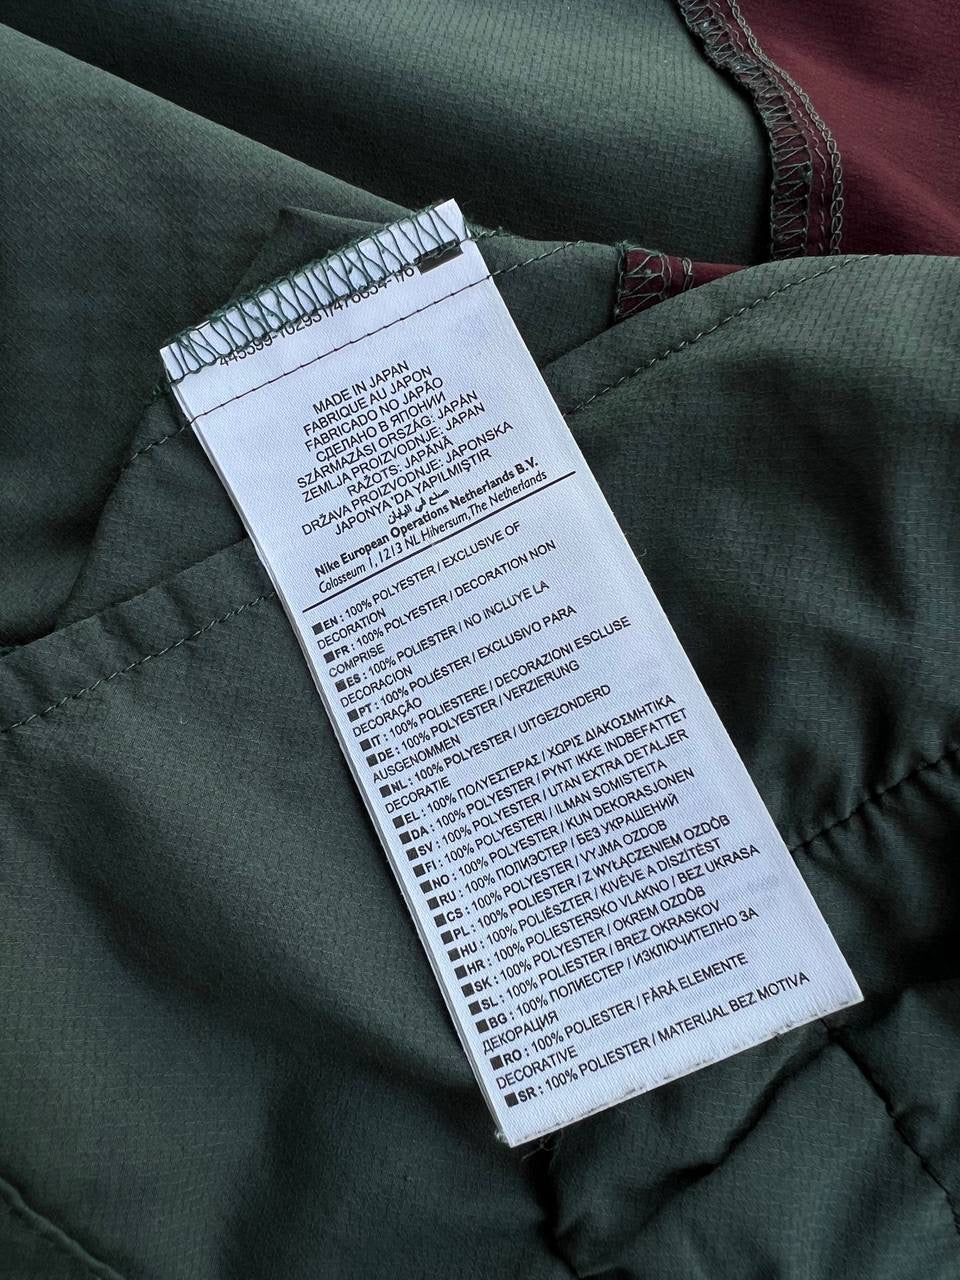 MADE IN JAPAN
FABRIQUE AU JAPON
FABRICADO NO JAPÃO
СДЕЛАНО В ЯПОНИИ
SZÁRMAZÁSI ORSZÁG: JAPÁN
ZEMLJA PROIZVODNJE: JAPAN
RAŽOTS: JAPĀNĀ
DRŽAVA PROIZVODNJE: JAPONSKA
JAPONYA 'DA YAPILMIŞTIR
صنع في اليابان
Nike European Operations Netherlands B.V.
Colosseum 1, 1213 NL Hilversum, The Netherlands
EN : 100% POLYESTER / EXCLUSIVE OF
DECORATION
FR : 100% POLYESTER / DECORATION NON
COMPRISE
ES : 100% POLIESTER / NO INCLUYE LA
DECORACION
PT : 100% POLIÉSTER / EXCLUSIVO PARA
DECORAÇÃO
IT : 100% POLIESTERE / DECORAZIONI ESCLUSE
DE : 100% POLYESTER / VERZIERUNG
AUSGENOMMEN
NL : 100% POLYESTER / UITGEZONDERD
DECORATIE
EL : 100% ΠΟΛΥΕΣΤΕΡΑΣ / ΧΩΡΙΣ ΔΙΑΚΟΣΜΗΤΙΚΑ
DA : 100% POLYESTER / PYNT IKKE INDBEFATTET
SV : 100% POLYESTER / UTAN EXTRA DETALJER
FI : 100% POLYESTERI / ILMAN SOMISTEITA
NO : 100% POLYESTER / KUN DEKORASJONEN
RU : 100% ПОЛИЭСТЕР / БЕЗ УКРАШЕНИЙ
CS : 100% POLYESTER / VYJMA OZDOB
PL : 100% POLIESTER / Z WYŁĄCZENIEM OZDÓB
HU : 100% POLIÉSZTER / KIVÉVE A DÍSZÍTÉST
HR : 100% POLIESTERSKO VLAKNO / BEZ UKRASA
SK : 100% POLYESTER / OKREM OZDÔB
SL : 100% POLIESTER / BREZ OKRASKOV
BG : 100% ПОЛИЕСТЕР / ИЗКЛЮЧИТЕЛНО ЗА
ДЕКОРАЦИЯ
RO : 100% POLIESTER / FĂRĂ ELEMENTE
DECORATIVE
SR : 100% POLIESTER / MATERIJAL BEZ MOTIVA